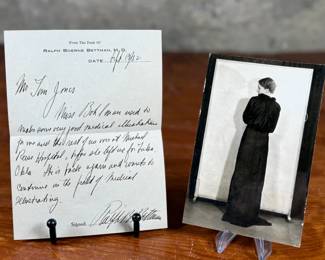 From The Desk Of
RALPH BOERNE BETTMAN, M.D.
DATE
Mr Tom Jones
Miss Bohlman used to
make some very good medical illustrations
for me and the rest of us out at Michael
Reese Hospital, before she left us for Tulsa,
Okla. She is back again and wants to
continue in the field of Medical
illustrating.
Signed, Ralph Bettman